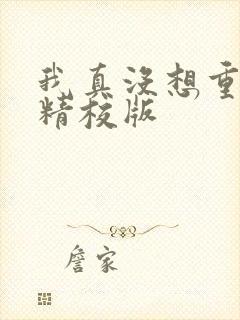 我真没想重
精校版
詹家